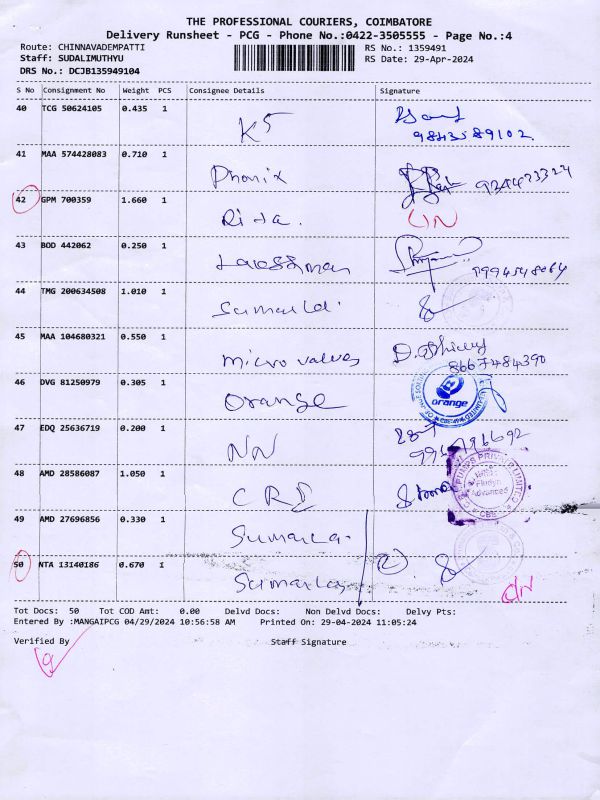 THE PROFESSIONAL COURIERS, COIMBATORE
Delivery Runsheet - PCG - Phone No.:0422-3505555 - Page No.:4
Route: CHINNAVADEMPATTI RS No.: 1359491
Staff: SUDALIMUTHYU RS Date: 29-Apr-2024
DRS No.: DCJB135949104
S No Consignment No Weight PCS Consignee Details Signature
40 TCG 50624105 0.435 1
K5
9843589102
41 MAA 574428083 0.710 1
Phonix
42 GPM 700359 1.660 1
Rita.
C/N
43 BOD 442062 0.250 1
9994548064
44 TMG 200634508 1.010 1
45 MAA 104680321 0.550 1
micro valves
8667484390
46 DVG 81250979 0.305 1
orange orange
47 EDQ 25636719 0.200 1
NN
48 AMD 28586087 1.050 1
CRI
Fludyn
Advanced
49 AMD 27696856 0.330 1
50 NTA 13140186 0.670 1
C/N
Tot Docs: 50 Tot COD Amt: 0.00 Delvd Docs: Non Delvd Docs: Delvy Pts:
Entered By :MANGAIPCG 04/29/2024 10:56:58 AM Printed On: 29-04-2024 11:05:24
Verified By Staff Signature